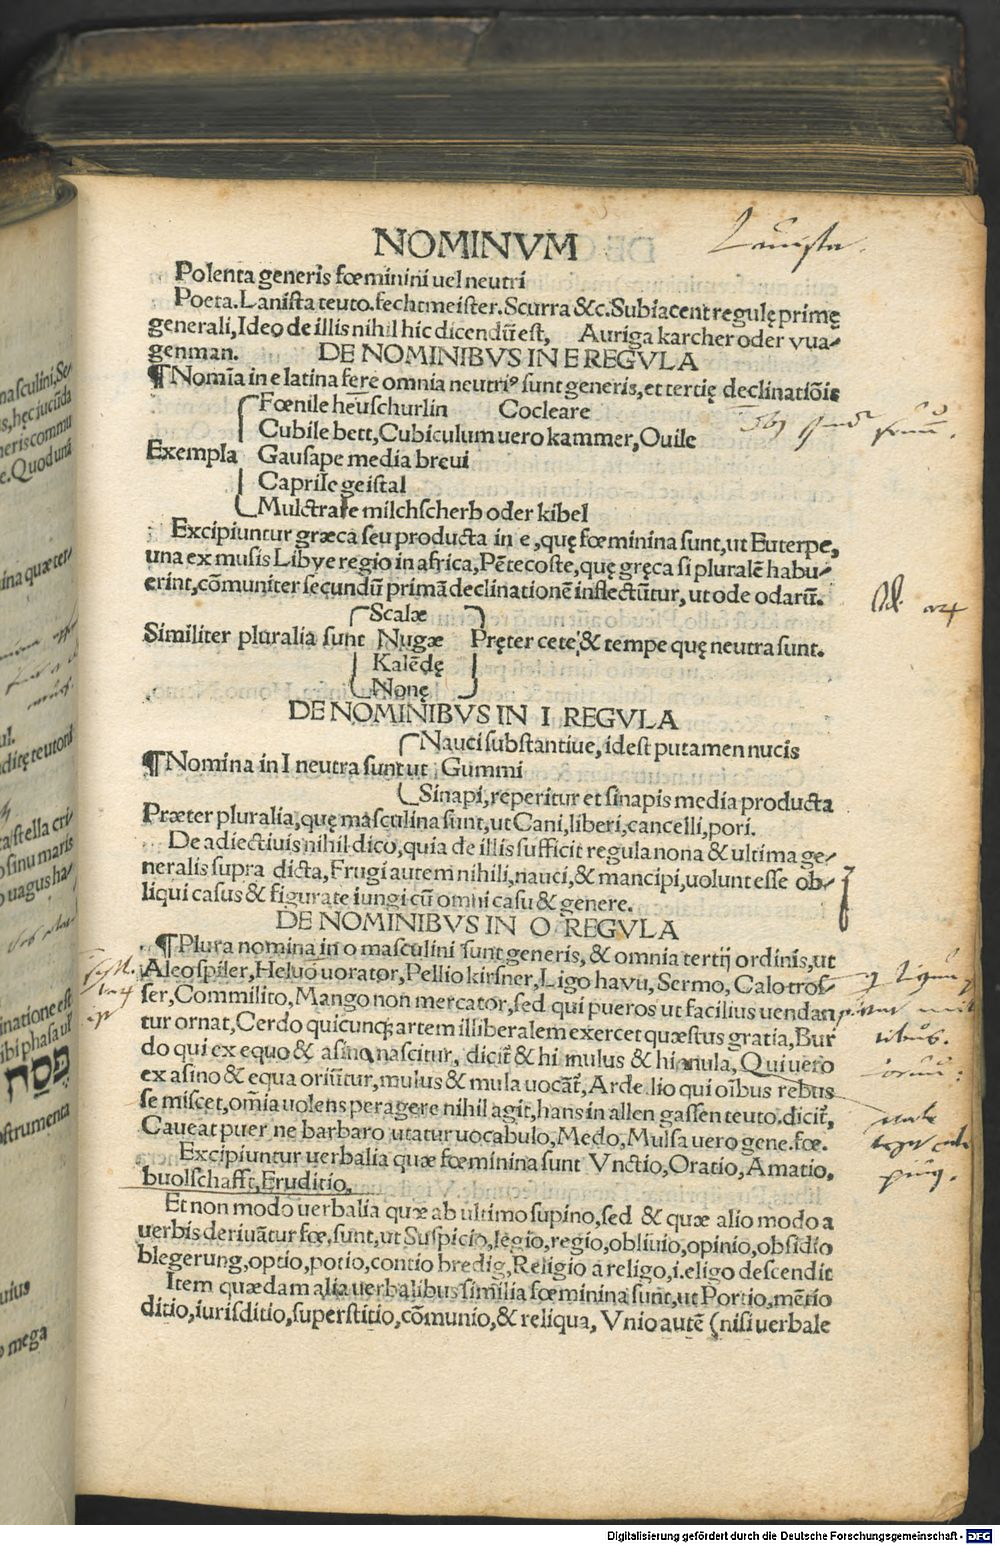 NOMINVM
Lanista.
Polenta generis fœminini uel neutri
Poeta.Lanista teuto.fechtmeister.Scurra &c.Subiacent regulę primę
generali,Ideo de illis nihil hic dicendū est, Auriga karcher oder vua⸗
genman. DE NOMINIBVS IN E REGVLA
¶ Nomīa in e latina fere omnia neutriꝰ sunt generis,et tertię declinatiōis
Fœnile heuschurlin Cocleare
Cubile bett,Cubiculum uero kammer,Ouile
Exempla Gausape media breui
Caprile geistal
Mulctrale milchscherb oder kibel
Excipiuntur græca seu producta in e,quę fœminina sunt,ut Euterpe,
una ex musis Libye regio in africa,Pētecoste,quę gręca si pluralē habu⸗
erint,cōmuniter secundū primā declinationē inflectūtur,ut ode odarū.
Scalæ
Similiter pluralia sunt Nugæ Pręter cete,& tempe quę neutra sunt.
Kalēdę
Nonę
DE NOMINIBVS IN I REGVLA
Nauci substantiue, idest putamen nucis
¶ Nomina in I neutra sunt ut Gummi
Sinapi,reperitur et sinapis media producta
Præter pluralia,quę masculina sunt,ut Cani,liberi,cancelli,pori.
De adiectiuis nihil dico,quia de illis sufficit regula nona & ultima ge⸗
neralis supra dicta,Frugi autem nihili,nauci,& mancipi,uolunt esse ob⸗
liqui casus & figurate iungi cū omni casu & genere.
DE NOMINIBVS IN O REGVLA
¶ Plura nomina in o masculini sunt generis, & omnia tertij ordinis,ut
Aleo spiler,Heluo uorator,Pellio kirsner,Ligo havu, Sermo, Calo tros⸗
ser,Commilito, Mango non mercator,sed qui pueros ut facilius uendan
tur ornat,Cerdo quicunqꝫ artem illiberalem exercet quæstus gratia,Bur
do qui ex equo & asina nascitur, dicit̄ & hi mulus & hi mula, Qui uero
ex asino & equa oriūtur,mulus & mula uocāt̄,Arde lio qui oībus rebus
se miscet,omīa uolens peragere nihil agit,hans in allen gassen teuto.dicit̄,
Caueat puer ne barbaro utatur uocabulo,Medo,Mulsa uero gene.fœ.
Excipiuntur uerbalia quæ fœminina sunt Vnctio,Oratio,Amatio,
buolschafft,Eruditio,
Et non modo uerbalia quæ ab ultimo supino,sed & quæ alio modo a
uerbis deriuātur fœ,sunt,ut Suspicio,legio,regio,obliuio,opinio,obsidio
blegerung,optio,potio,contio bredig,Religio a religo,i.eligo descendit
Item quædam alia uerbalibus similia fœminina sunt,ut Portio,mētio
ditio,iurisditio,superstitio,cōmunio,& reliqua, Vnio autē (nisi uerbale
masculini,Se⸗
s,hęc iucūda
neris commu
e.Quod unā
ina quæ ter⸗
ul.
ditę teutoni
ta/stella cri⸗
o sinu maris
o uagus ha⸗
inatione est
ibi phasa ul
פֶּסַח
ostrumenta
uius
o mega
Digitalisierung gefördert durch die Deutsche Forschungsgemeinschaft - DFG